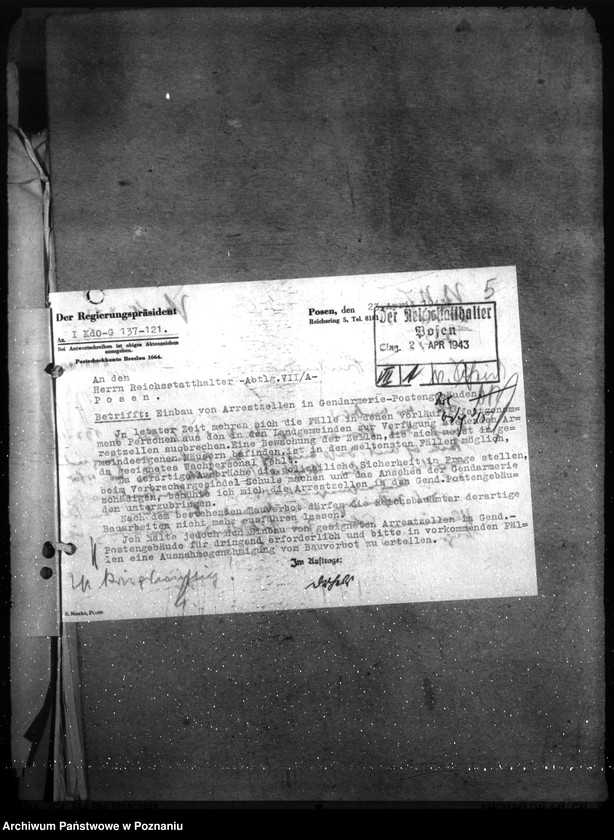 5
Der Regierungspräsident
Az. I KdO-G 137-121.
Bei Antwortschreiben ist obiges Aktenzeichen
anzugeben.
Postscheckkonto Breslau 1664.
Posen, den
Reichsring 5, Tel.
Der Reichsstatthalter
Posen
Eing. APR 1943
VII
An den
Herrn Reichsstatthalter -Abtlg.VII/A-
Posen.
Betrifft: Einbau von Arrestzellen in Gendarmerie-Postengebäuden.
In letzter Zeit mehren sich die Fälle in denen vorläufig festgenom=
mene Personen aus den in den Landgemeinden zur Verfügung stehenden Ar=
restzellen ausbrechen. Eine Bewachung der Zellen, die sich meist in ge=
meindeeigenen Häusern befinden, ist in den seltensten Fällen möglich,
da geeignetes Wachpersonal fehlt.
Da derartige Ausbrüche die polizeiliche Sicherheit in Frage stellen,
beim Verbrechergesindel Schule machen und das Ansehen der Gendarmerie
schädigen, bemühte ich mich die Arrestzellen in den Gend.Postengebäu=
den unterzubringen.
Nach dem bestehenden Bauverbot dürfen die Reichsbauämter derartige
Bauarbeiten nicht mehr ausführen lassen.
Ich halte jedoch den Einbau von geeigneten Arrestzellen in Gend.-
Postengebäude für dringend erforderlich und bitte in vorkommenden Fäl=
len eine Ausnahmegenehmigung vom Bauverbot zu erteilen.
Im Auftrage:
Archiwum Państwowe w Poznaniu